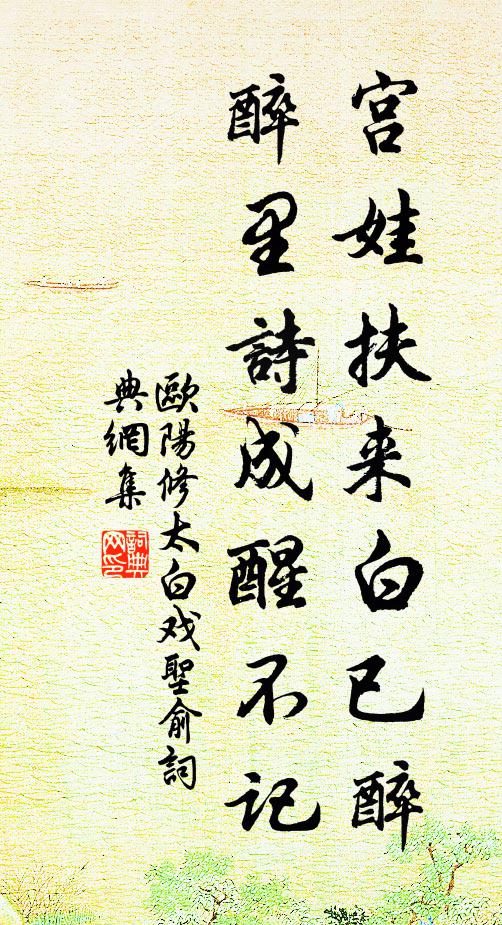 宫娃扶来白已醉
醉里詩成醒不记
歐陽修太白戏聖俞詞
典網集
詞典
网印